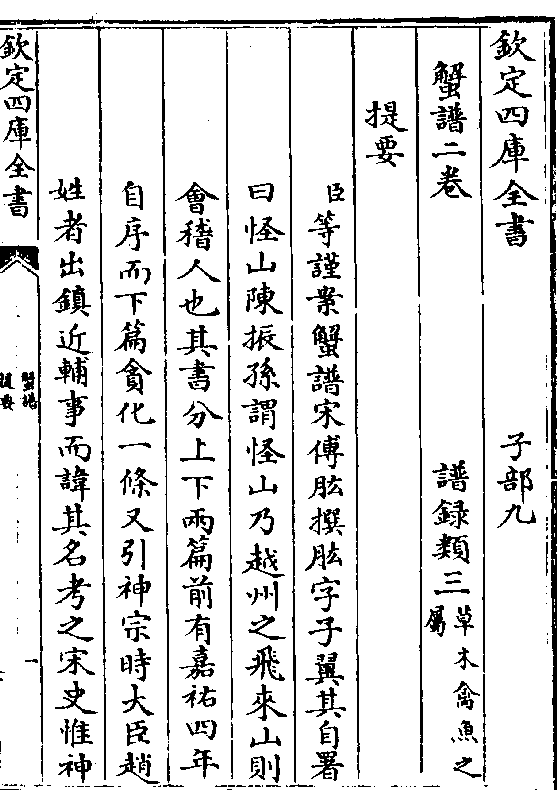 欽定四庫全書 子部九
蟹譜二卷 譜録類三草木禽魚之屬
提要
臣等謹案蟹譜宋傅肱撰肱字子翼其自署
曰怪山陳振孫謂怪山乃越州之飛來山則
會稽人也其書分上下兩篇前有嘉祐四年
自序而下篇貪化一條又引神宗時大臣趙
姓者出鎮近輔事而諱其名考之宋史惟神
欽定四庫全書
蟹譜
提要
一